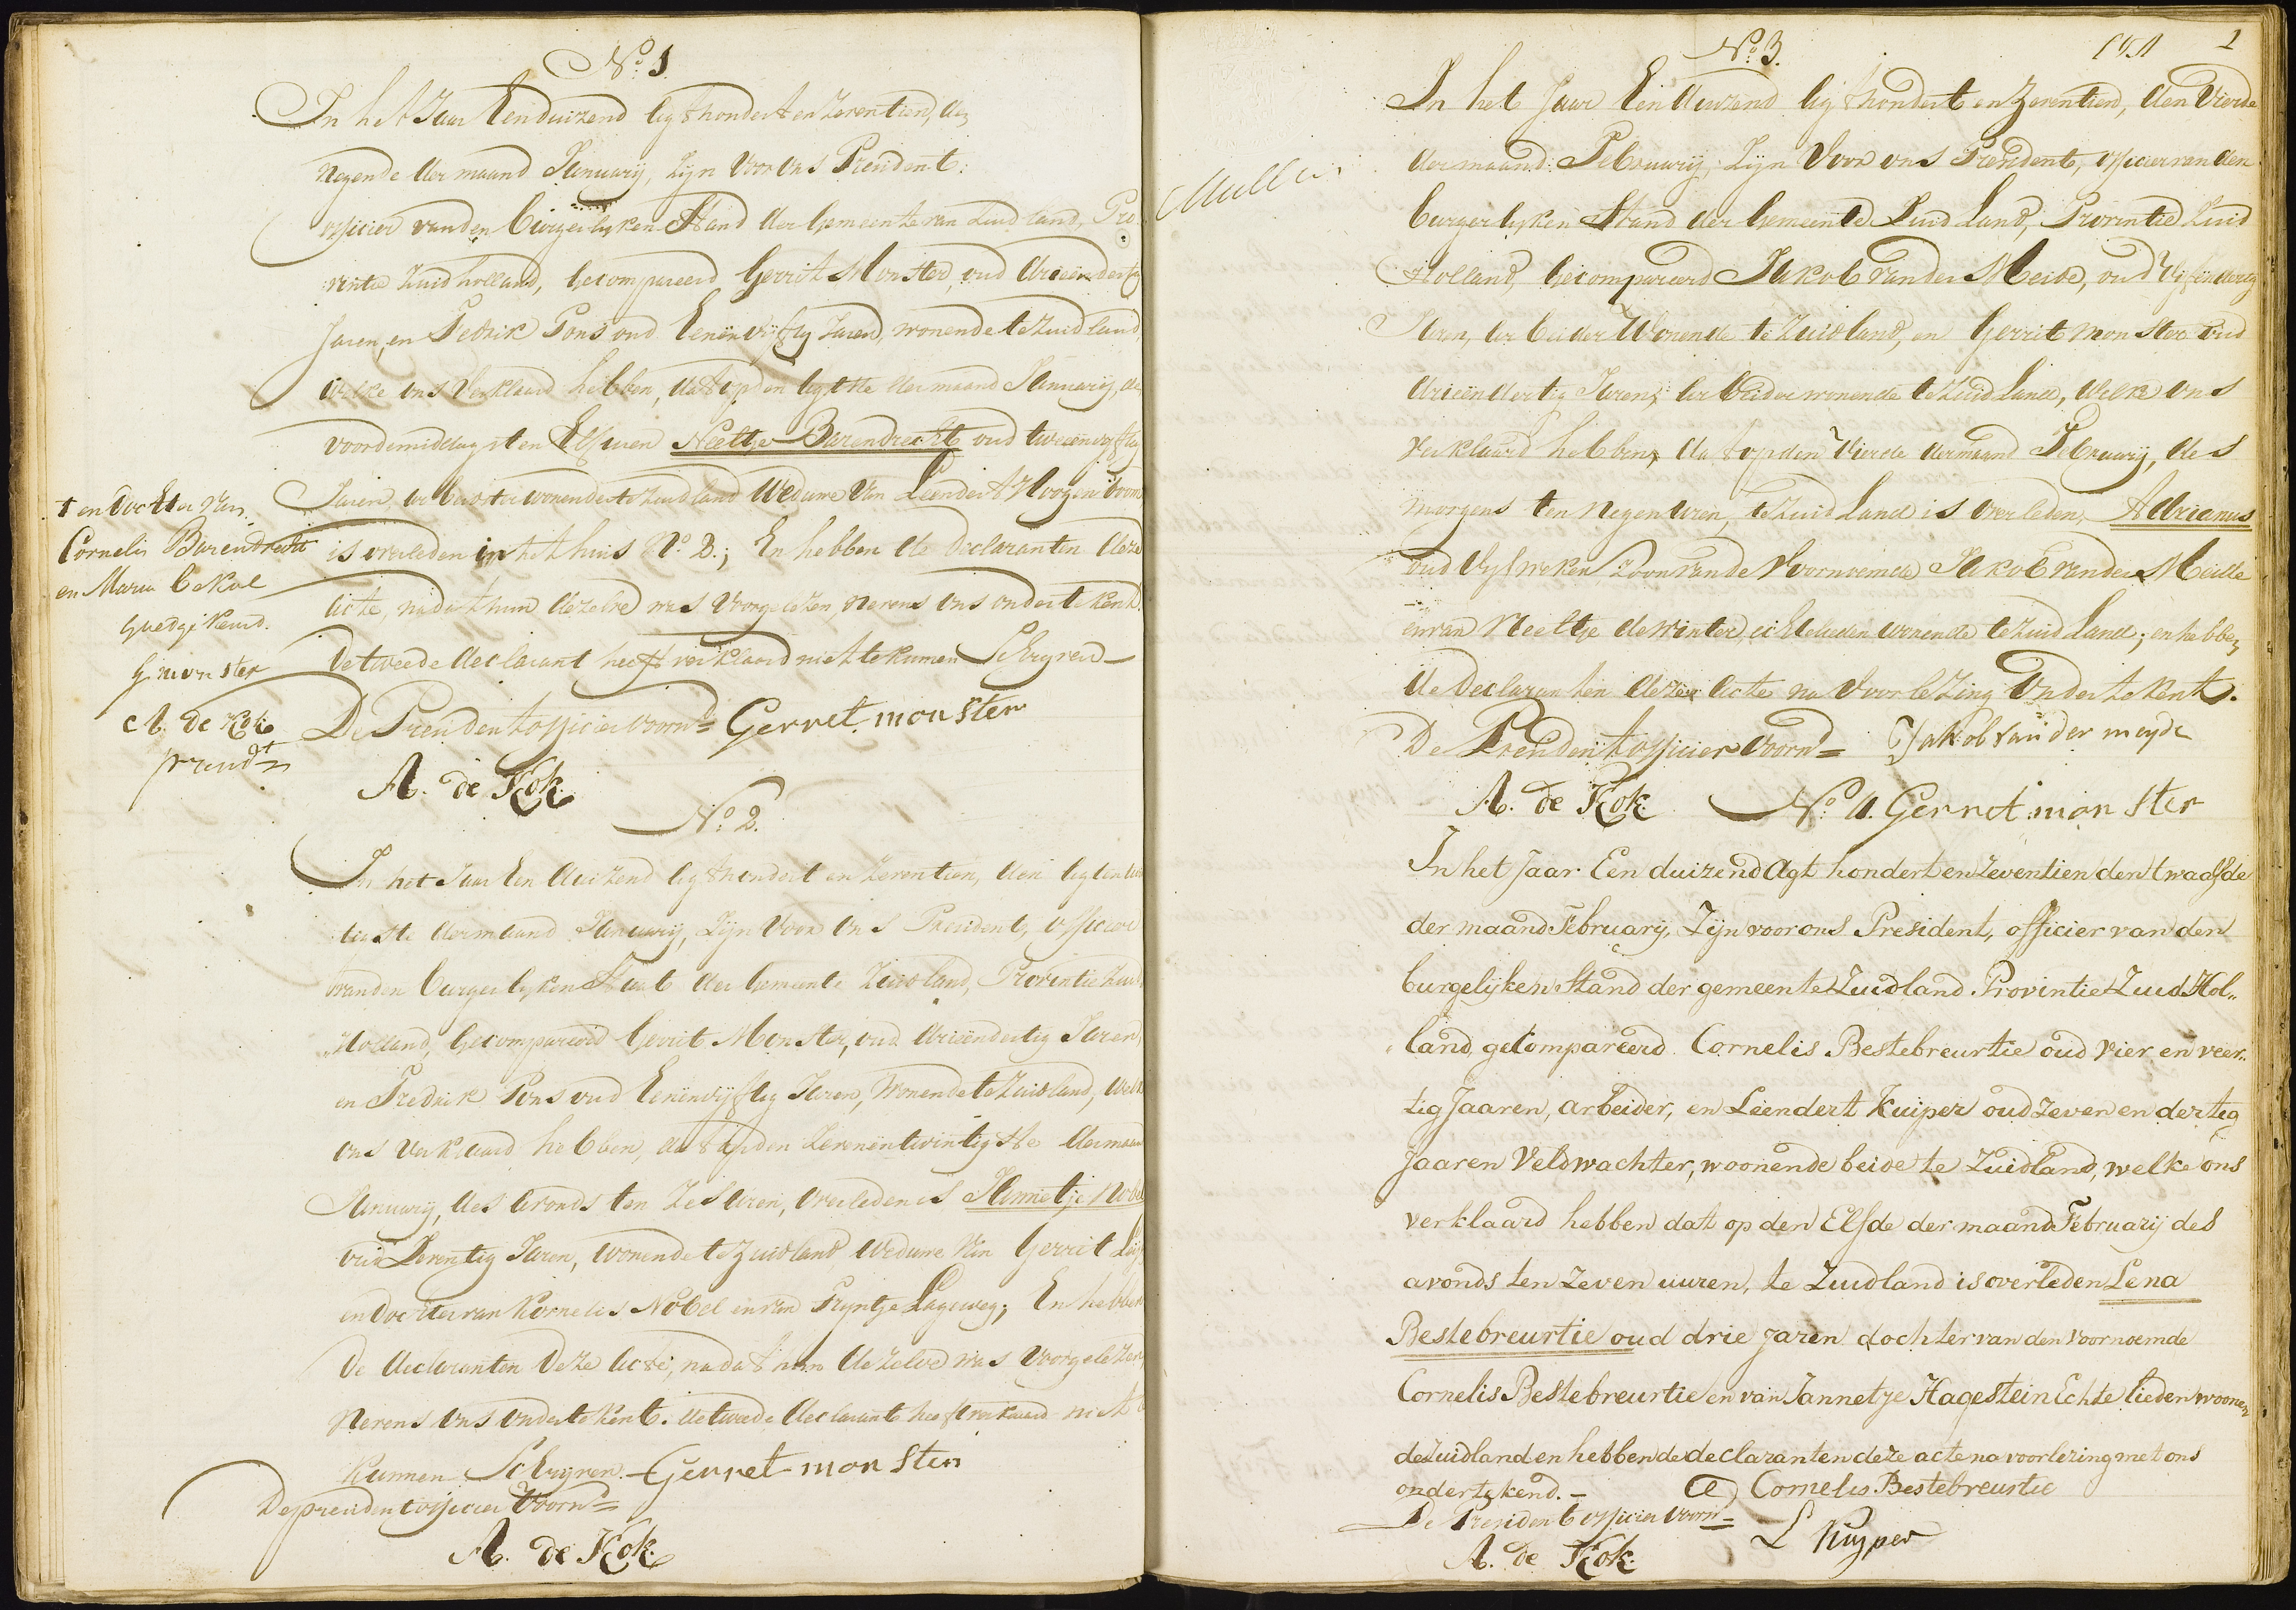 No. 1
In het Jaar Een duizend Agt hondert en Zeventien, den
negende der maand January, Zijn voor ons President:
officier van den Burgerlyken Stand der Gemeente van Zuid land, Pro
vintie Zuid holland, Gecompareerd Gerrit Monster, oud drieëndertig
Jaren, en Fedrik Pons oud Eenënvijftig Jaren, wonende te Zuid land,
welke ons Verklaard hebben, dat op den Agtste der maand January, des
voordemiddags ten Elf uren Neeltje Barendrecht oud tweeënvyftig
Jaren, arbeidster wonende te Zuid land Weduwe Van Leendert Hoogenboom
is overleden in het huis No. 2.; En hebben de Declaranten deze
Acte, nadat hun dezelve was Voorgelezen, nevens ons ondertekent.
De tweede declarant heeft verklaard niet te kunnen Schryven
De President officier voornd= Gerret monster
A. de Kok
† en dochter van
Cornelis Barendrecht
en Maria Bekol
goedgekeurd.
G monster
A. de Kok
presidt
No. 2.
In het Jaar Een duizend Agt hondert en Zeventien, den Agtentwin
tigste der maand January, Zijn voor ons President, officier
van den burgerlyken Staat der Gemeente Zuidland, Provintie Zuid
Holland, Gecompareerd Gerrit Monster, oud drieëndertig Jaren,
en Fredrik Pons oud Eenënvijftig Jaren, Wonende te Zuidland, welke
ons verklaard hebben, dat op den Zevenëntwintigste der maand
January, des avonds ten Zes uren, overleden is Jannetje Nobel
oud Zeventig Jaren, wonende te Zuidland Weduwe Van Gerrit
en Dochter van Kornelis Nobel en van Pryntje Lageweg; En hebben
de declaranten deze Acte, nadat hun dezelve was Voorgelezen,
Nevens ons ondertekent. de tweede declarant heeft verklaard niet te
kunnen Schryven. Gerret monster
De president officier voornd=
A. de Kok
1
No. 3.
In het Jaar Eenduizend Agt hondert en Zeventien, den Vierde
der maand February, Zijn Voor ons President, officier van den
burgerlyken Stand der Gemeente Zuid Land, Provintie Zuid
Holland, Gecompareerd Jakob van der Meide, oud Vijfëndertig
Jaren, arbeider Wonende te Zuidland, en Gerrit monster oud
drieëndertig Jaren, arbeider wonende te Zuid Land, welke ons
verklaard hebben, dat op den Vierde der maand February, des
morgens ten negen uren, te Zuid Land is overleden, Adrianus
oud Vyf weken Zoon van de Voornoemde Jakob van der Meide
en van Neeltje de Winter, echtelieden wonende te Zuid Land; en hebben
de declaranten deze Acte na Voorlezing Ondertekent.
De President officier Voornd= Jakob van der meyde
A. de Kok No. 4. Gerret monster
In het Jaar Een duizend Agt hondert en Zeventien den twaalfde
der maand February, Zijn voor ons President, officier van den
burgelijken Stand der gemeente Zuidland Provintie Zuid Hol„
land, geCompareerd Cornelis Bestebreurtie oud vier en veer„
tig Jaaren, arbeider, en Leendert Kuijper oud zeven en dertig
Jaaren Veldwachter, woonende beide te Zuidland, welke ons
verklaard hebben dat op den Elfde der maand February des
avonds ten zeven uuren, te Zuidland is overleden Lena
Bestebreurtie oud drie jaren dochter van den voornoemde
Cornelis Bestebreurtie en van Jannetje Hagestein Echte lieden woonen
de Zuidland en hebben de declaranten deze acte na voorlezing met ons
ondertekend.- Cornelis Bestebreurtie
De President officier voorn= L Kuyper
A. de Kok